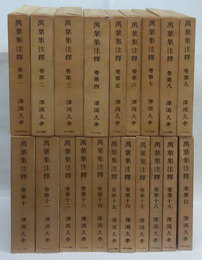 萬葉集注釋 卷第一 澤瀉久孝
萬葉集注釋 卷第二 澤瀉久孝
萬葉集注釋 卷第三 澤瀉久孝
萬葉集注釋 卷第四 澤瀉久孝
萬葉集注釋 卷第五 澤瀉久孝
萬葉集注釋 卷第六 澤瀉久孝
萬葉集注釋 卷第七 澤瀉久孝
萬葉集注釋 卷第八 澤瀉久孝
萬葉集注釋 卷第九 澤瀉久孝
萬葉集注釋 卷第十 澤瀉久孝
萬葉集注釋 卷第十一 澤瀉久孝
萬葉集注釋 卷第十二 澤瀉久孝
萬葉集注釋 卷第十三 澤瀉久孝
萬葉集注釋 卷第十四 澤瀉久孝
萬葉集注釋 卷第十五 澤瀉久孝
萬葉集注釋 卷第十六 澤瀉久孝
萬葉集注釋 卷第十七 澤瀉久孝
萬葉集注釋 卷第十八 澤瀉久孝
萬葉集注釋 卷第十九 澤瀉久孝
萬葉集注釋 卷第廿 澤瀉久孝